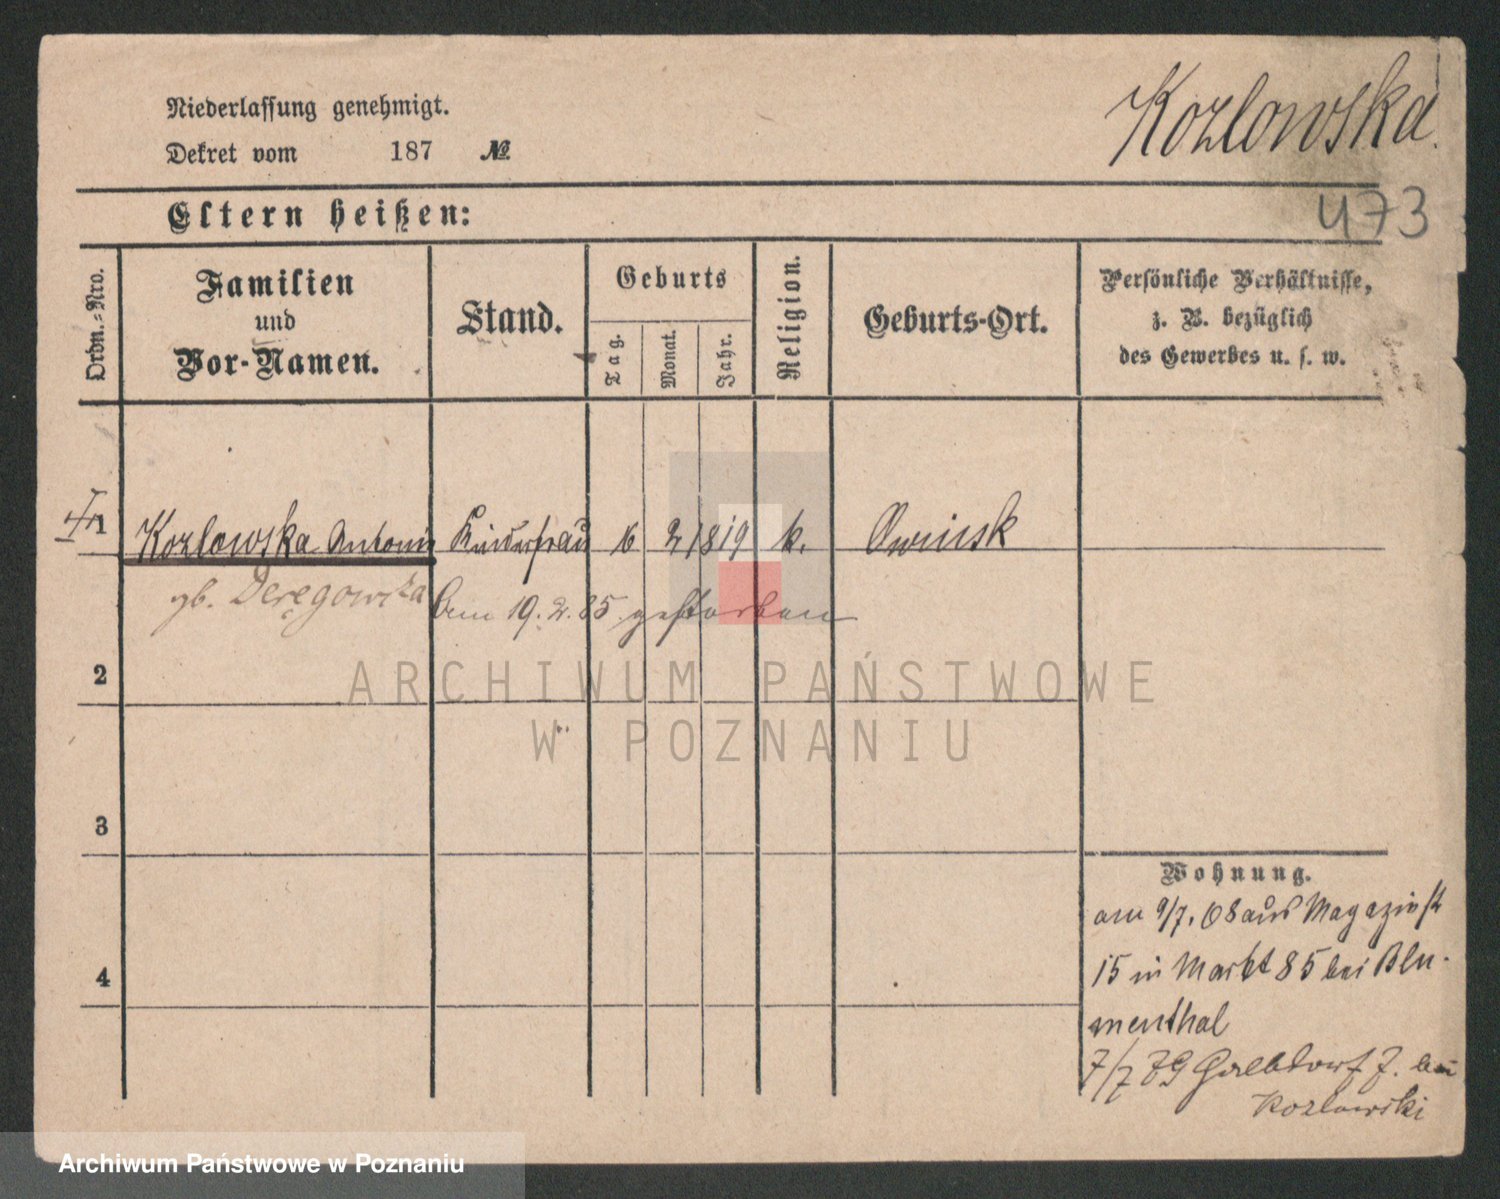 Niederlassung genehmigt.
Kozlowska.
Dekret vom 187 №
473
Eltern heißen:
Ordn.-Nro.
Familien
und
Vor-Namen.
Stand.
Geburts
Tag.
Monat.
Jahr.
Religion.
Geburts-Ort.
Persönliche Verhältnisse,
z. B. bezüglich
des Gewerbes u. s. w.
1 Kozlowska Antonie Kinderfrau 16 2 1819 k. Owinsk
gb. Deręgowska Am 19. 2. 85 gestorben
2
ARCHIWUM PAŃSTWOWE
W POZNANIU
3
4
Wohnung.
am 9/7. 68 aus Magazinst
15 in Markt 85 bei Blu-
menthal
7/7 79 Halbdorf 7. bei
Kozlowski
Archiwum Państwowe w Poznaniu